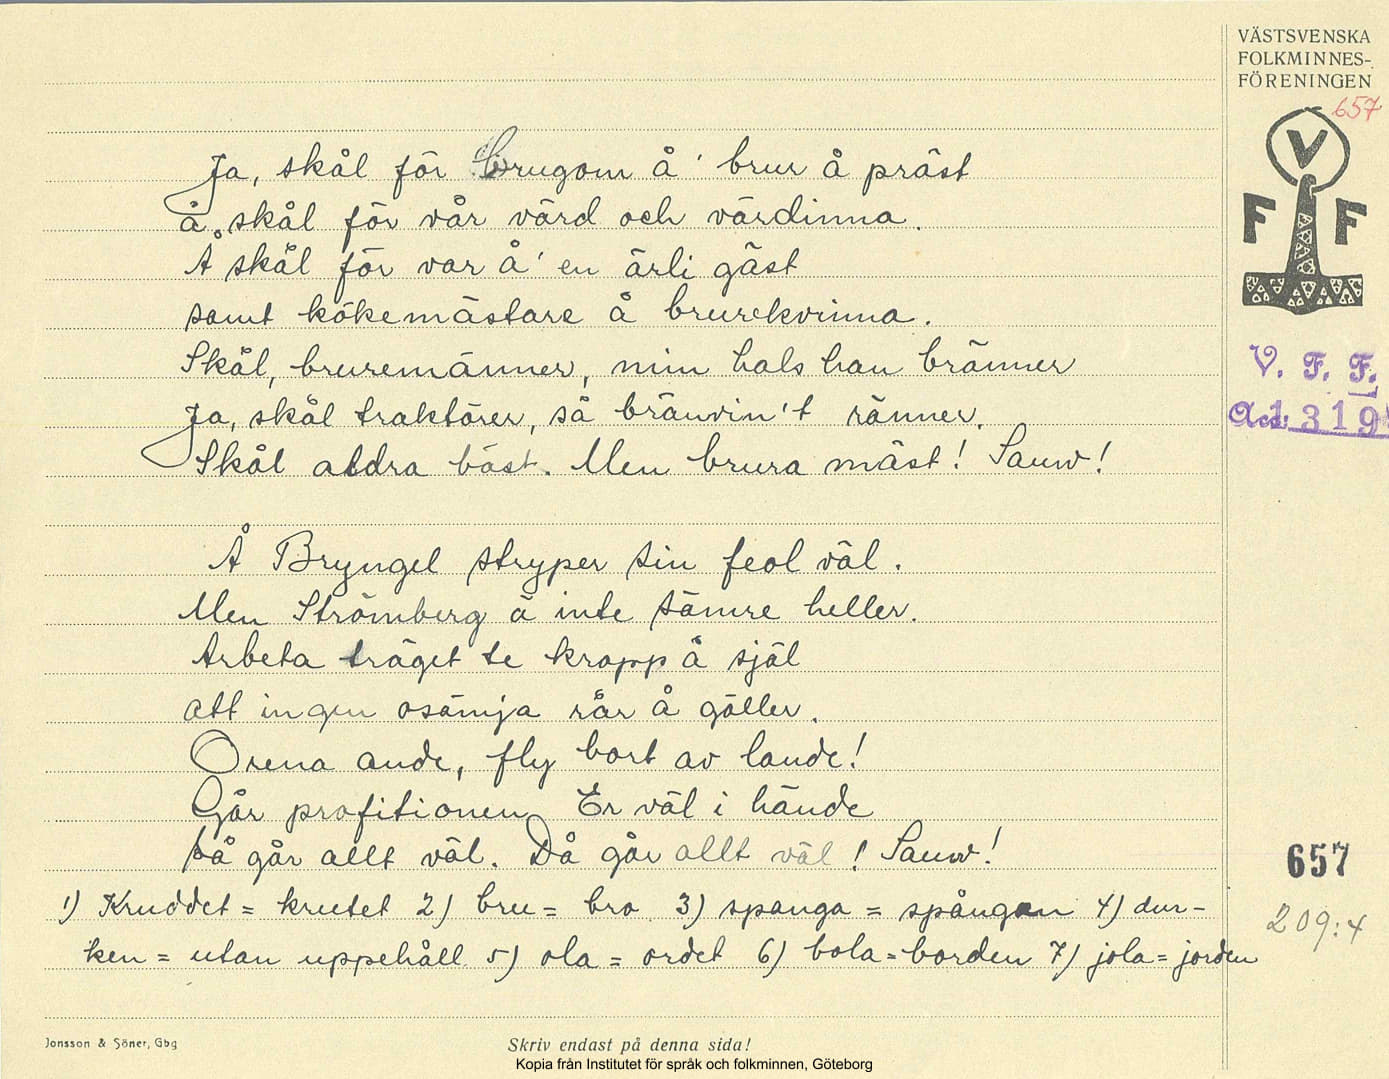 VÄSTSVENSKA
FOLKMINNES-
FÖRENINGEN
657
V
F F
V. F. F.
Acc. 1319
Ja, skål för brugom å' brur å präst
å skål för vår värd och värdinna.
Å skål för var å' en ärli gäst
samt kökemästare å brurekvinna.
Skål, bruremänner, min hals han bränner
Ja, skål traktörer, så bränvin't ränner.
Skål aldra bäst. Men brura mäst! Sauw!
Å Bryngel stryper sin feol väl.
Men Strömberg ä inte sämre heller.
Arbeta träget te kropp å själ
att ingen osämja rår å gäller.
Orena ande, fly bort av lande!
Går profitionen Er väl i hände
så går allt väl. Då går allt väl! Sauw!
1) Kruddet = krutet 2) bru = bro 3) spanga = spången 4) dur-
ken = utan uppehåll 5) ola = ordet 6) bola = borden 7) jola = jorden
657
209:4
Jonsson & Söner, Gbg
Skriv endast på denna sida!
Kopia från Institutet för språk och folkminnen, Göteborg